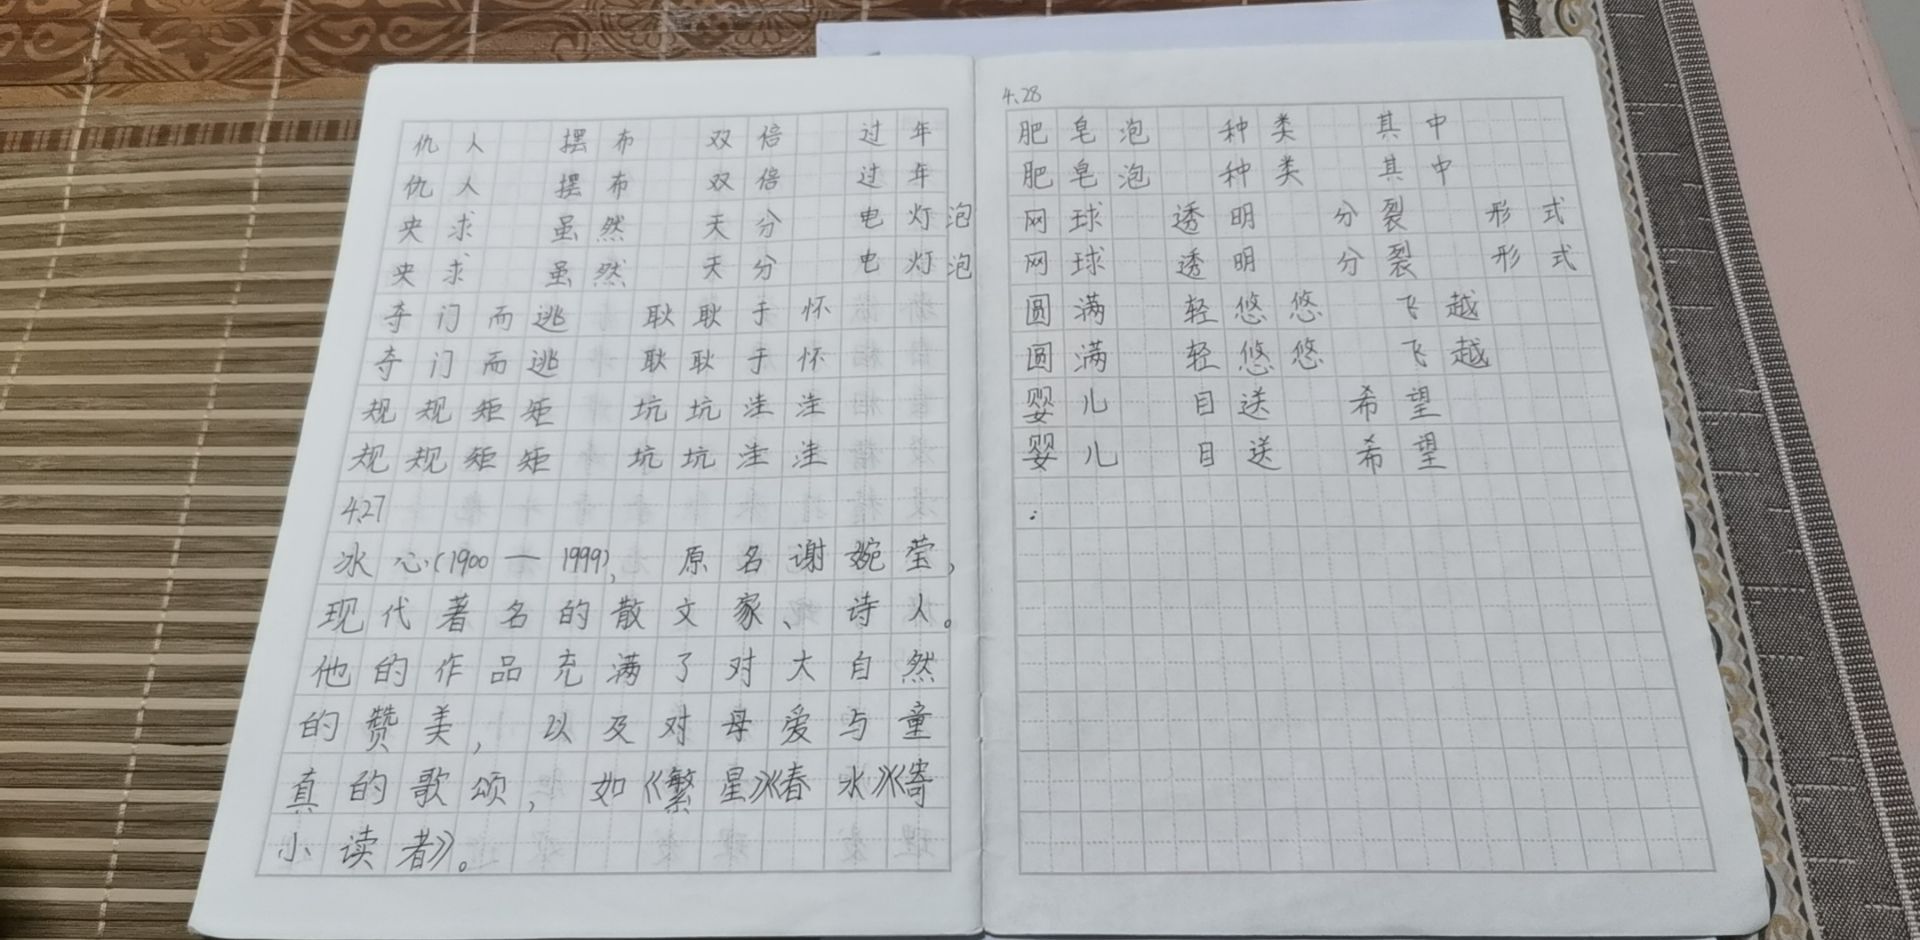 仇人 摆布 双倍 过年
仇人 摆布 双倍 过年
央求 虽然 天分 电灯泡
央求 虽然 天分 电灯泡
夺门而逃 耿耿于怀
夺门而逃 耿耿于怀
规规矩矩 坑坑洼洼
规规矩矩 坑坑洼洼
4.27
冰心(1900—1999), 原名谢婉莹,
现代著名的散文家、诗人。
他的作品充满了对大自然
的赞美, 以及对母爱与童
真的歌颂, 如《繁星》《春水》《寄
小读者》。
4.28
肥皂泡 种类 其中
肥皂泡 种类 其中
网球 透明 分裂 形式
网球 透明 分裂 形式
圆满 轻悠悠 飞越
圆满 轻悠悠 飞越
婴儿 目送 希望
婴儿 目送 希望